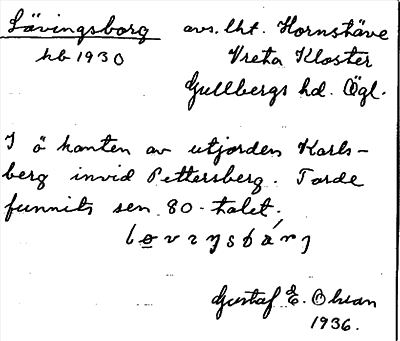 Lövingsborg avs. lht. Hornstäve
hb 1930 Vreta Kloster
Gullbergs hd. Ögl.
I ö kanten av utjorden Karls-
berg invid Pettersberg. Torde
funnits sen 80-talet.
Gustaf E. Olsson
1936.